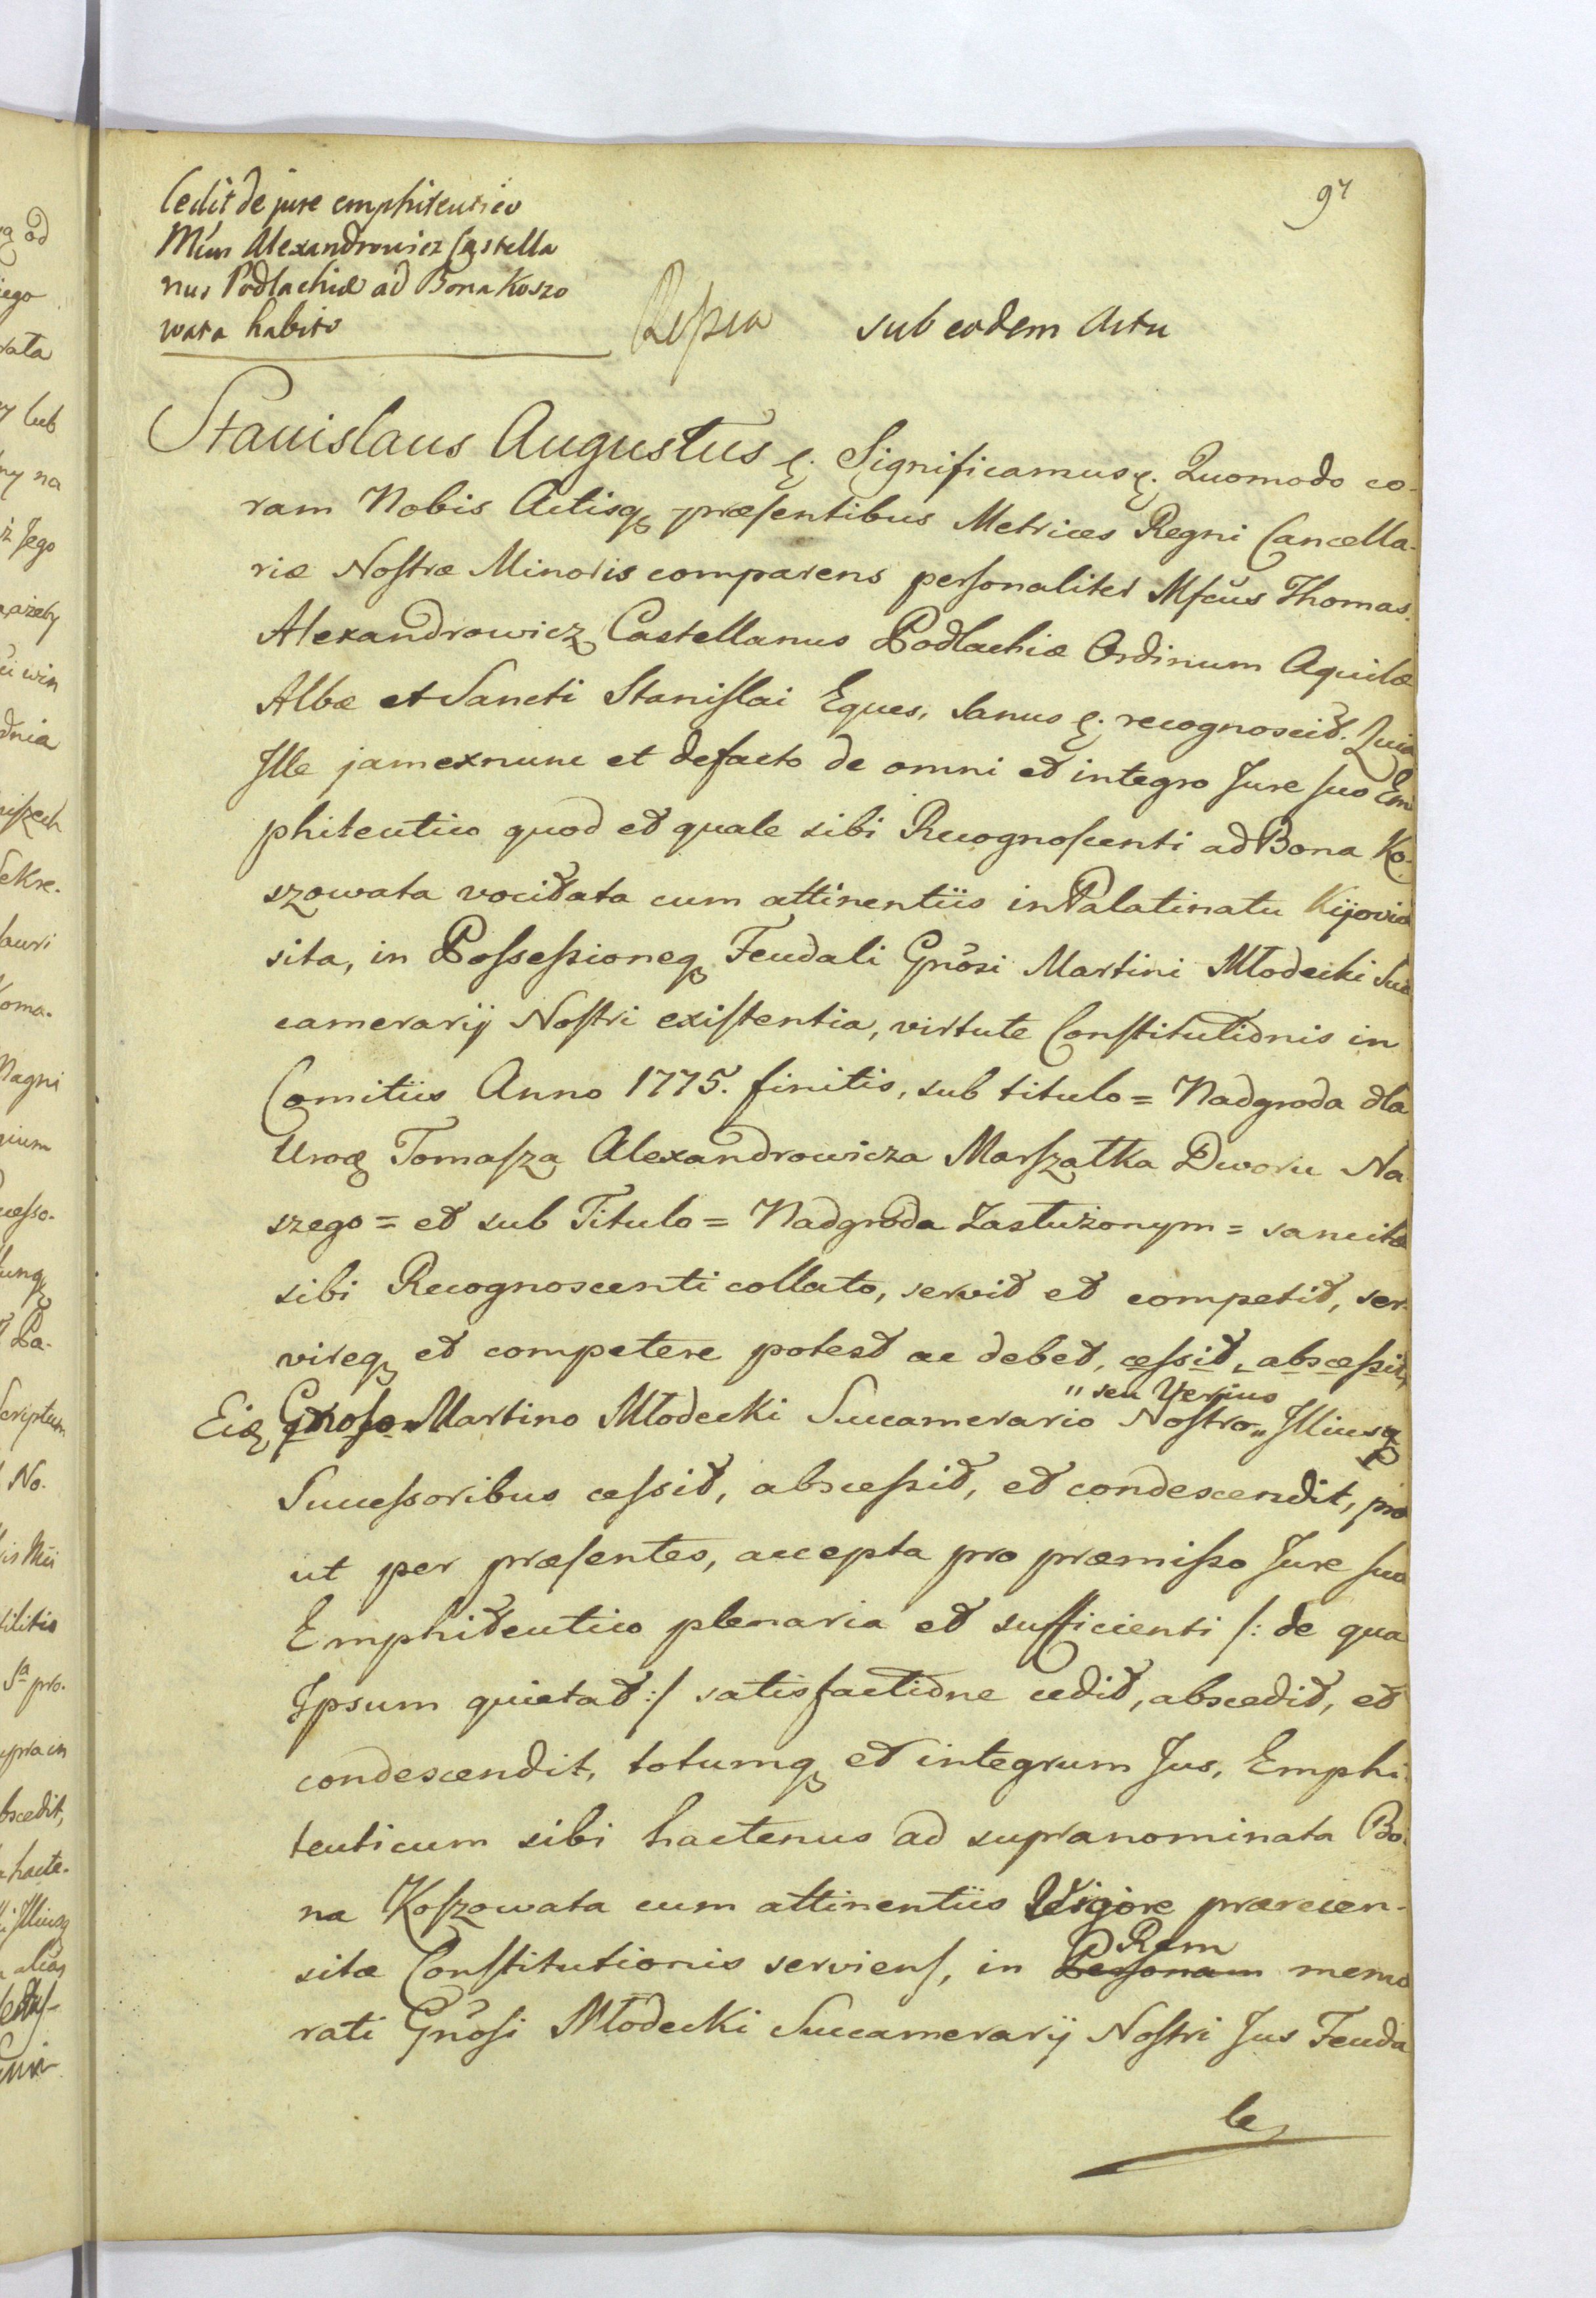 97
Cedit de jure emphiteutico
Mfcus Alexandrowicz Castella
nus Podlachiæ ad Bona Koszo
wata habito
sub eodem Actu
Stanislaus Augustus &. Significamus &. Quomodo co-
ram Nobis Actisq præsentibus Metrices Regni Cancella-
riæ Nostræ Minoris comparens personaliter Mfcus Thomas
Alexandrowicz Castellanus Podlachiæ Ordinum Aquilæ
Albæ et Sancti Stanislai Eques, Sanus &. recognoscit. Quia
Ille jamexnunc et defacto de omni et integro Jure suo Em
phiteutico quod et quale sibi Recognoscenti ad Bona Ko-
szowata vocitata cum attinentiis in Palatinatu Kijoviæ
sita, in Possessioneq Feudali Gnosi Martini Młodecki Suc
camerarij Nostri existentia, virtute Constitutionis in
Comitiis Anno 1775. finitis, sub titulo = Nadgroda dla
Urog Tomasza Alexandrowicza Marszałka Dworu Na
szego = et sub Titulo = Nadgroda Zasłużonym = sancitæ
sibi Recognoscenti collato, servit et competit, ser-
vireq et competere potest ac debet, cessit, abscessit,
" seu Verius
Eidq Gnoso Martino Młodecki Succamerario Nostro „ Illiusq
Successoribus cessit, abscessit, et condescendit, pro
ut per præsentes, accepta pro præmisso Jure suo
Emphiteutico plenaria et sufficienti /: de qua
Ipsum quietat :/ satisfactione cedit, abscedit, et
condescendit, totumq et integrum Jus, Emphi
teuticum sibi hactenus ad supranominata Bo-
na Koszowata cum attinentiis Vigore præreccen-
Rem
sitæ Constitutionis serviens, in Personam memo
rati Gnosi Młodecki Succamerarij Nostri Jus Feuda
le